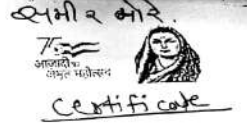 समीर मोरे.
75
आज़ादी का
अमृत महोत्सव
Certificate